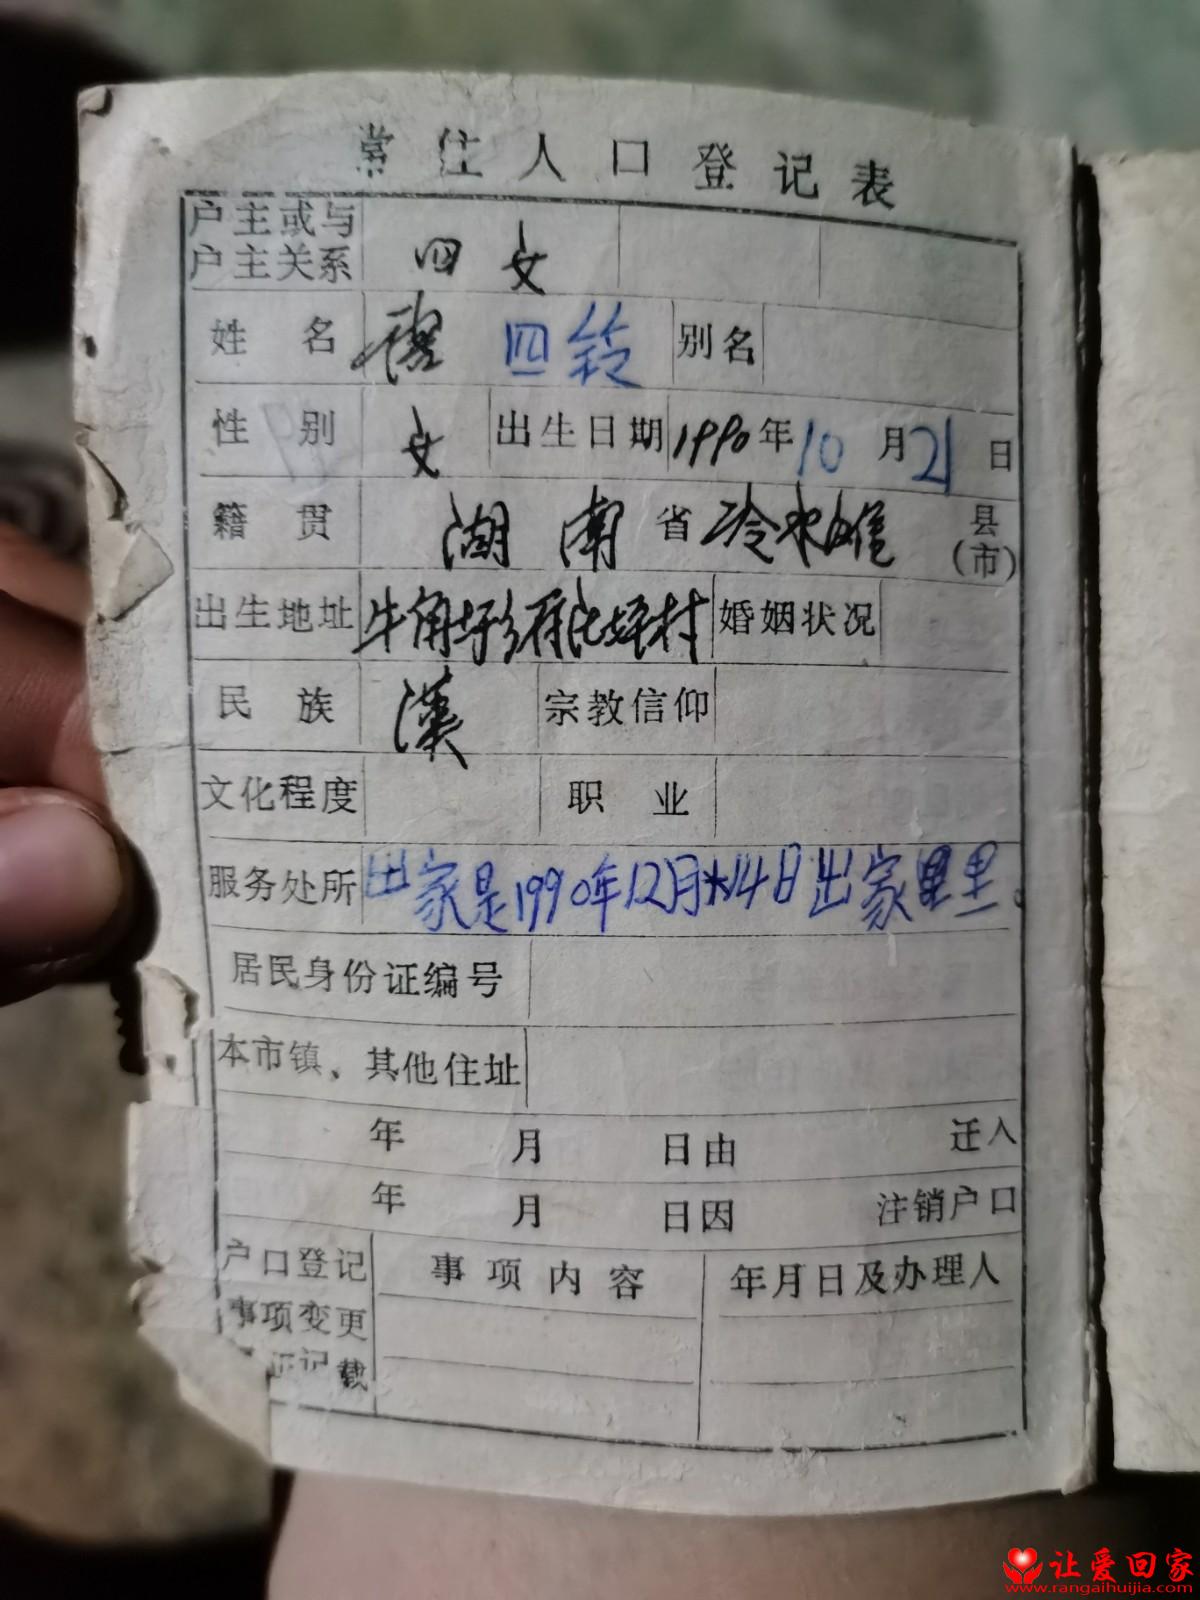 常住人口登记表
户主或与
户主关系 四女
姓名 四铃 别名
性别 女 出生日期 1990年10月21日
籍贯 湖南省冷水滩县
(市)
出生地址 牛角圩 坪村 婚姻状况
民族 漢 宗教信仰
文化程度 职业
服务处所 出家是1990年12月 14日出家里里。
居民身份证编号
本市镇、其他住址
年 月 日由 迁入
年 月 日因 注销户口
户口登记 事项内容 年月日及办理人
事项变更
记载
让爱回家
www.rangaihuijia.com